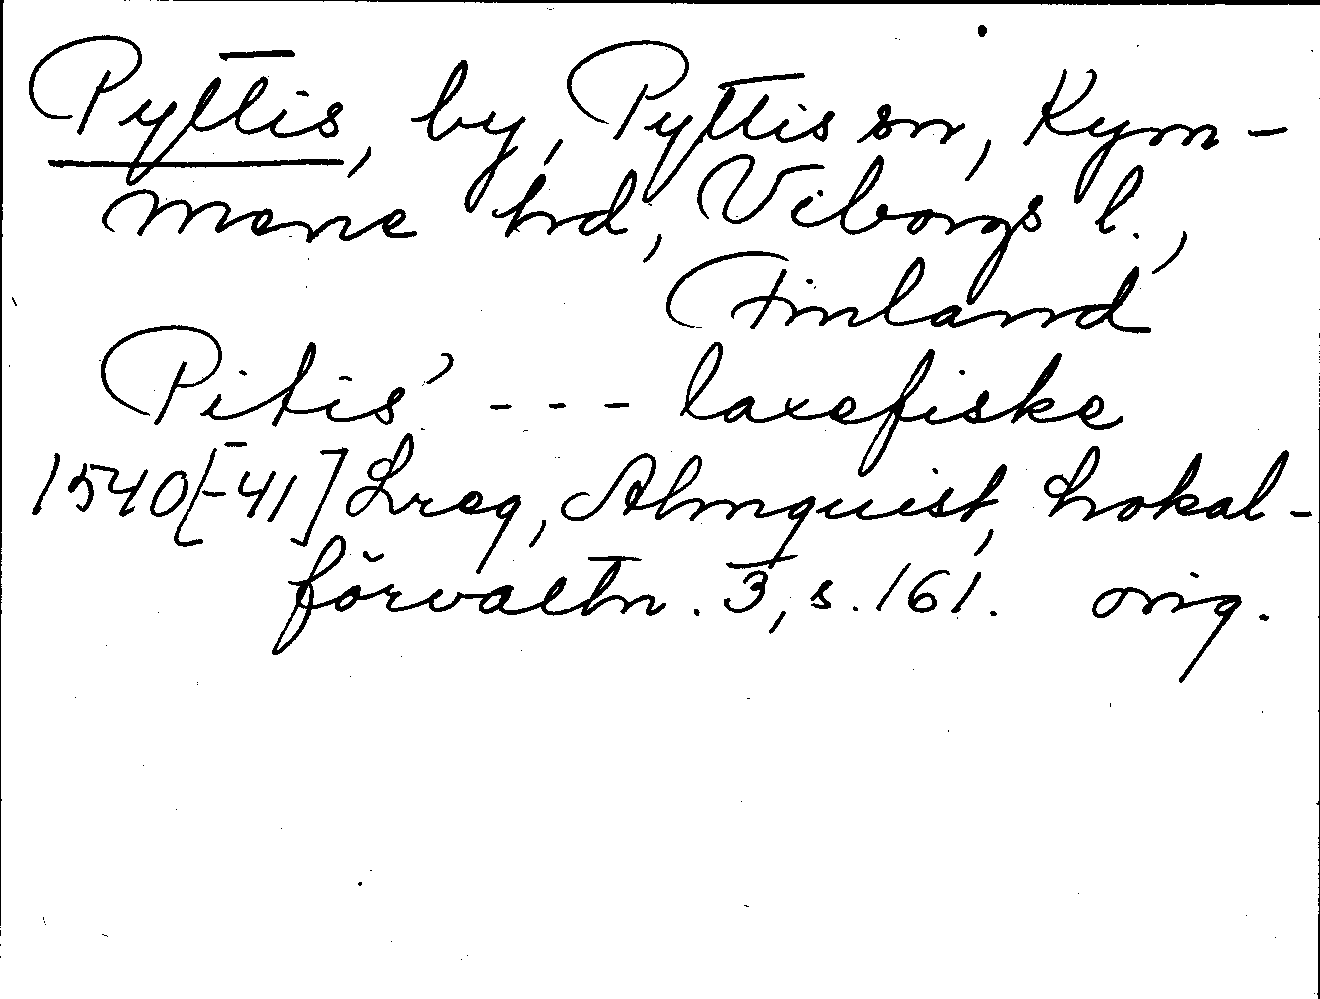 Pyttis, by, Pyttis sn, Kym-
mene hd, Viborgs l.,
Finland
Pitis' --- laxefiske
1540[-41] Lreg, Almquist, Lokal-
förvaltn. 3, s. 161. orig.